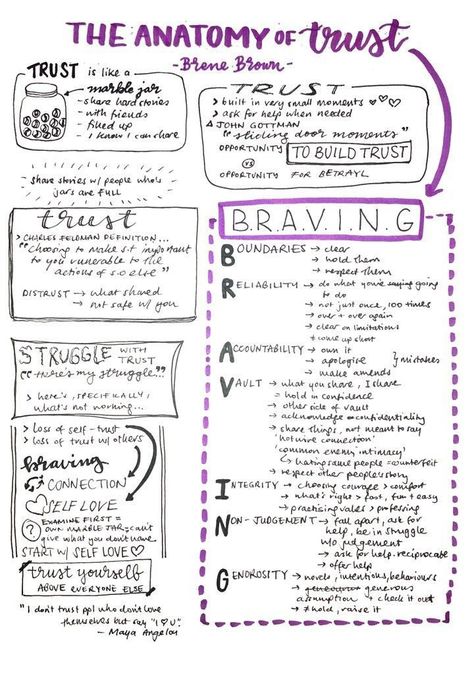 THE ANATOMY OF trust
- Brene Brown -
TRUST is like a
marble jar
- share hard stories
- with friends
- filled up
- I know I can share
share stories w/ people who's
jars are FULL
TRUST
> built in very small moments ♡♡♡
> ask for help when needed
JOHN GOTTMAN
"sliding door moments"
OPPORTUNITY TO BUILD TRUST
VS
OPPORTUNITY FOR BETRAYL
trust
> CHARLES FELDMAN DEFINITION...
"Choosing to make s.t important
to you vunerable to the
actions of s.o else"
DISTRUST → what shared
→ not safe w/ you
STRUGGLE WITH TRUST
"there's my struggle..."
> here's, SPECIFICALLY,
what's not working...
> loss of self-trust
> loss of trust w/ others
braving
CONNECTION
SELF LOVE
? EXAMINE FIRST =
OWN MARBLE JAR = can't
give what you don't have
START W/ SELF LOVE ♡
trust yourself
ABOVE EVERYONE ELSE
"I don't trust ppl who don't love
themselves but say "I ♡ U"
- Maya Angelou
B.R.A.V.I.N.G
BOUNDARIES → clear
→ hold them
→ respect them
RELIABILITY → do what you're saying going
to do
→ not just once, 100 times
→ over + over again
→ clear on limitations
+ come up short
ACCOUNTABILITY → own it
→ apologise } mistakes
→ make amends
VAULT → what you share, I share
= hold in confidence
→ other side of vault
→ acknowledge confidentiality
→ share things, not meant to say
'hotwire connection'
common enemy intimacy'
↳ hating same people = counterfeit
→ respect other people's
INTEGRITY → choosing courage > comfort
→ what's right > fast, fun + easy
→ practising values > professing
NON-JUDGEMENT → fall apart, ask for
help, be in struggle
w/o judgement
→ ask for help - reciprocate
→ offer help
GENOROSITY → intentions, behaviours
→ generous
assumption → check it out
→ hold, raise it